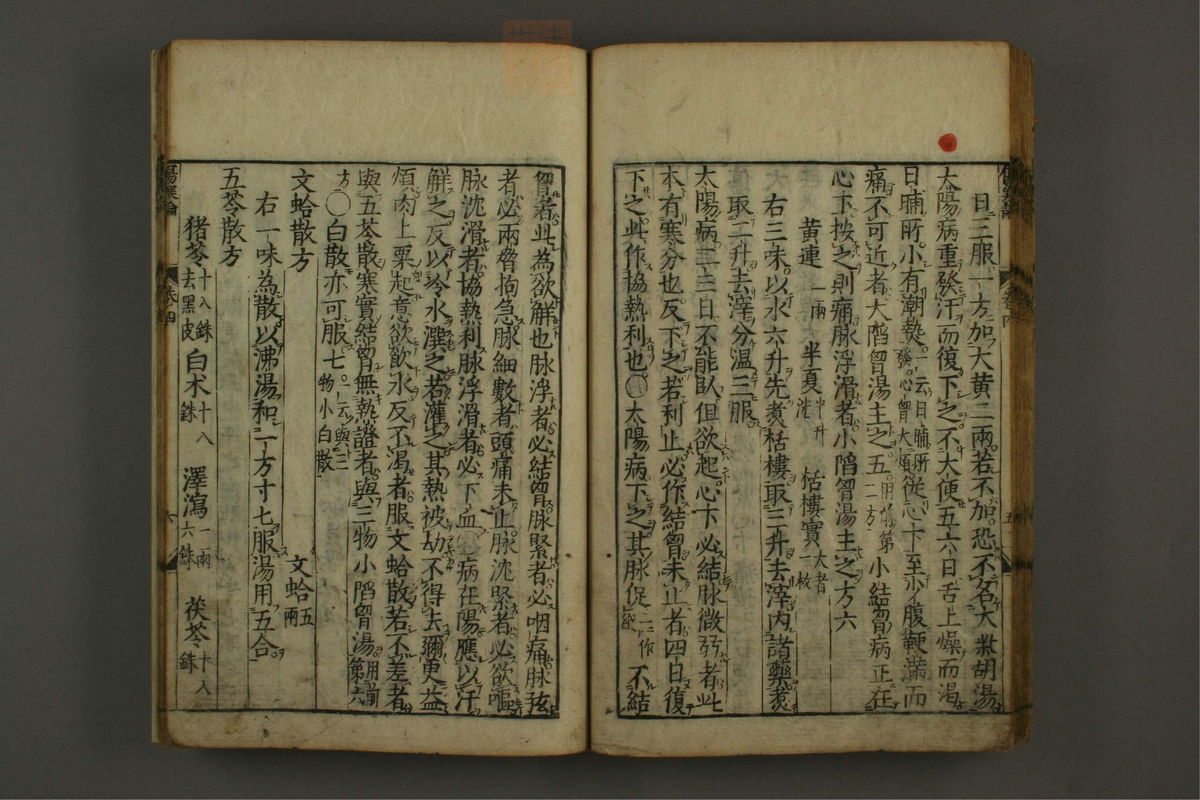 日二服一方加大黄二兩若不加恐不名大柴胡湯
太陽病重發汗而復下之不大便五六日舌上燥而渴
日晡所小有潮熱一云日晡所發心胷大煩從心下至少腹鞕滿而
痛不可近者大陷胷湯主之五用前第二方小結胷病正在
心下按之則痛脉浮滑者小陷胷湯主之方六
黄連一兩 半夏半升洗 栝樓實大者一枚
右三味以水六升先煮栝樓取三升去滓内諸藥煮
取二升去滓分温三服
太陽病二三日不能臥但欲起心下必結脉微弱者此
本有寒分也反下之若利止必作結胷未止者四日復
下之此作協熱利也○太陽病下之其脉促一作縱不結
胷者此為欲解也脉浮者必結胷脉緊者必咽痛脉弦
者必兩脅拘急脉細數者頭痛未止脉沈緊者必欲嘔
脉沈滑者協熱利脉浮滑者必下血○病在陽應以汗
解之反以冷水潠之若灌之其熱被劫不得去彌更益
煩肉上粟起意欲飲水反不渴者服文蛤散若不差者
與五苓散寒實結胷無熱證者與三物小陷胷湯用前第六
方○白散亦可服七一云與三物小白散
文蛤散方
文蛤五兩
右一味為散以沸湯和一方寸匕服湯用五合
五苓散方
猪苓十八銖去黑皮 白术十八銖 澤瀉一兩六銖 茯苓十八銖
傷寒論 卷四 六